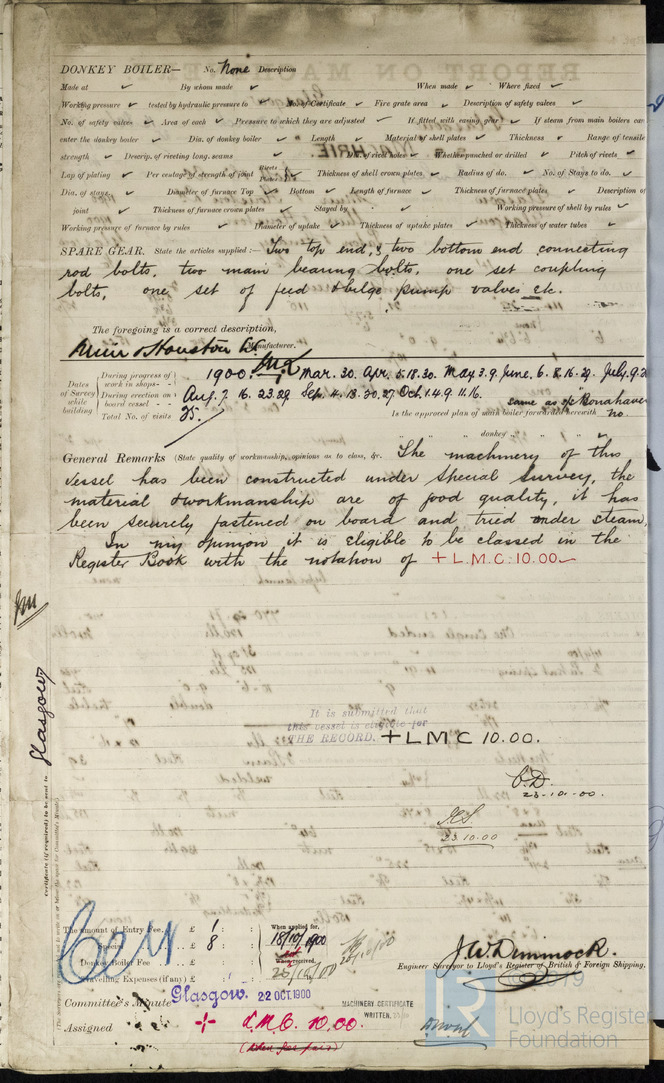 DONKEY BOILER— No. None Description
Made at ✓ By whom made ✓ When made ✓ Where fixed ✓
Working pressure ✓ tested by hydraulic pressure to No. of Certificate ✓ Fire grate area ✓ Description of safety valves ✓
No. of safety valves ✓ Area of each ✓ Pressure to which they are adjusted ✓ If fitted with easing gear ✓ If steam from main boilers can
enter the donkey boiler ✓ Dia. of donkey boiler ✓ Length ✓ Material of shell plates ✓ Thickness ✓ Range of tensile
strength ✓ Descrip. of riveting long. seams ✓ Dia. of rivet holes ✓ Whether punched or drilled ✓ Pitch of rivets ✓
Lap of plating ✓ Per centage of strength of joint Rivets Thickness of shell crown plates ✓ Radius of do. ✓ No. of Stays to do. ✓
Dia. of stays ✓ Diameter of furnace Top ✓ Bottom ✓ Length of furnace ✓ Thickness of furnace plates ✓ Description of
joint ✓ Thickness of furnace crown plates ✓ Stayed by ✓ Working pressure of shell by rules ✓
Working pressure of furnace by rules ✓ Diameter of uptake ✓ Thickness of uptake plates ✓ Thickness of water tubes ✓
SPARE GEAR. State the articles supplied:— Two top end, & two bottom end connecting
rod bolts, two main bearing bolts, one set coupling
bolts, one set of feed & bilge pump valves etc.
The foregoing is a correct description,
Muir & Houston Ld Manufacturer.
Dates of Survey while building
During progress of work in shops - - 1900:— Mar. 30. Apr. 5. 18. 30. May. 3. 9. June. 6. 8. 16. 29. July. 9.
During erection on board vessel - - Aug. 7. 16. 23. 29 Sep. 4. 18. 20. 27 Oct. 1. 4. 9. 11. 16.
same as s/s "Monahaven
Total No. of visits 25. Is the approved plan of main boiler forwarded herewith no.
" " " donkey " " "
General Remarks (State quality of workmanship, opinions as to class, &c. The machinery of this
vessel has been constructed under Special Survey, the
material & workmanship are of good quality, it has
been securely fastened on board and tried under steam,
In my opinion it is eligible to be classed in the
Register Book with the notation of + L.M.C. 10.00
Glasgow
Certificate (if required) to be sent to
It is submitted that
this vessel is eligible for
THE RECORD. + L M C 10.00.
23.10.00.
23.10.00
The amount of Entry Fee. . £ 1 : :
Special . . £ 8 : :
Donkey Boiler Fee . . £ : :
Travelling Expenses (if any) £ : :
When applied for,
18/10/1900
When received,
J.W. Dimmock.
Engineer Surveyor to Lloyd's Register of British & Foreign Shipping.
Committee's Minute Glasgow. 22 OCT. 1900
MACHINERY CERTIFICATE
WRITTEN.
Assigned + L.M.C. 10.00
Lloyd's Register
Foundation